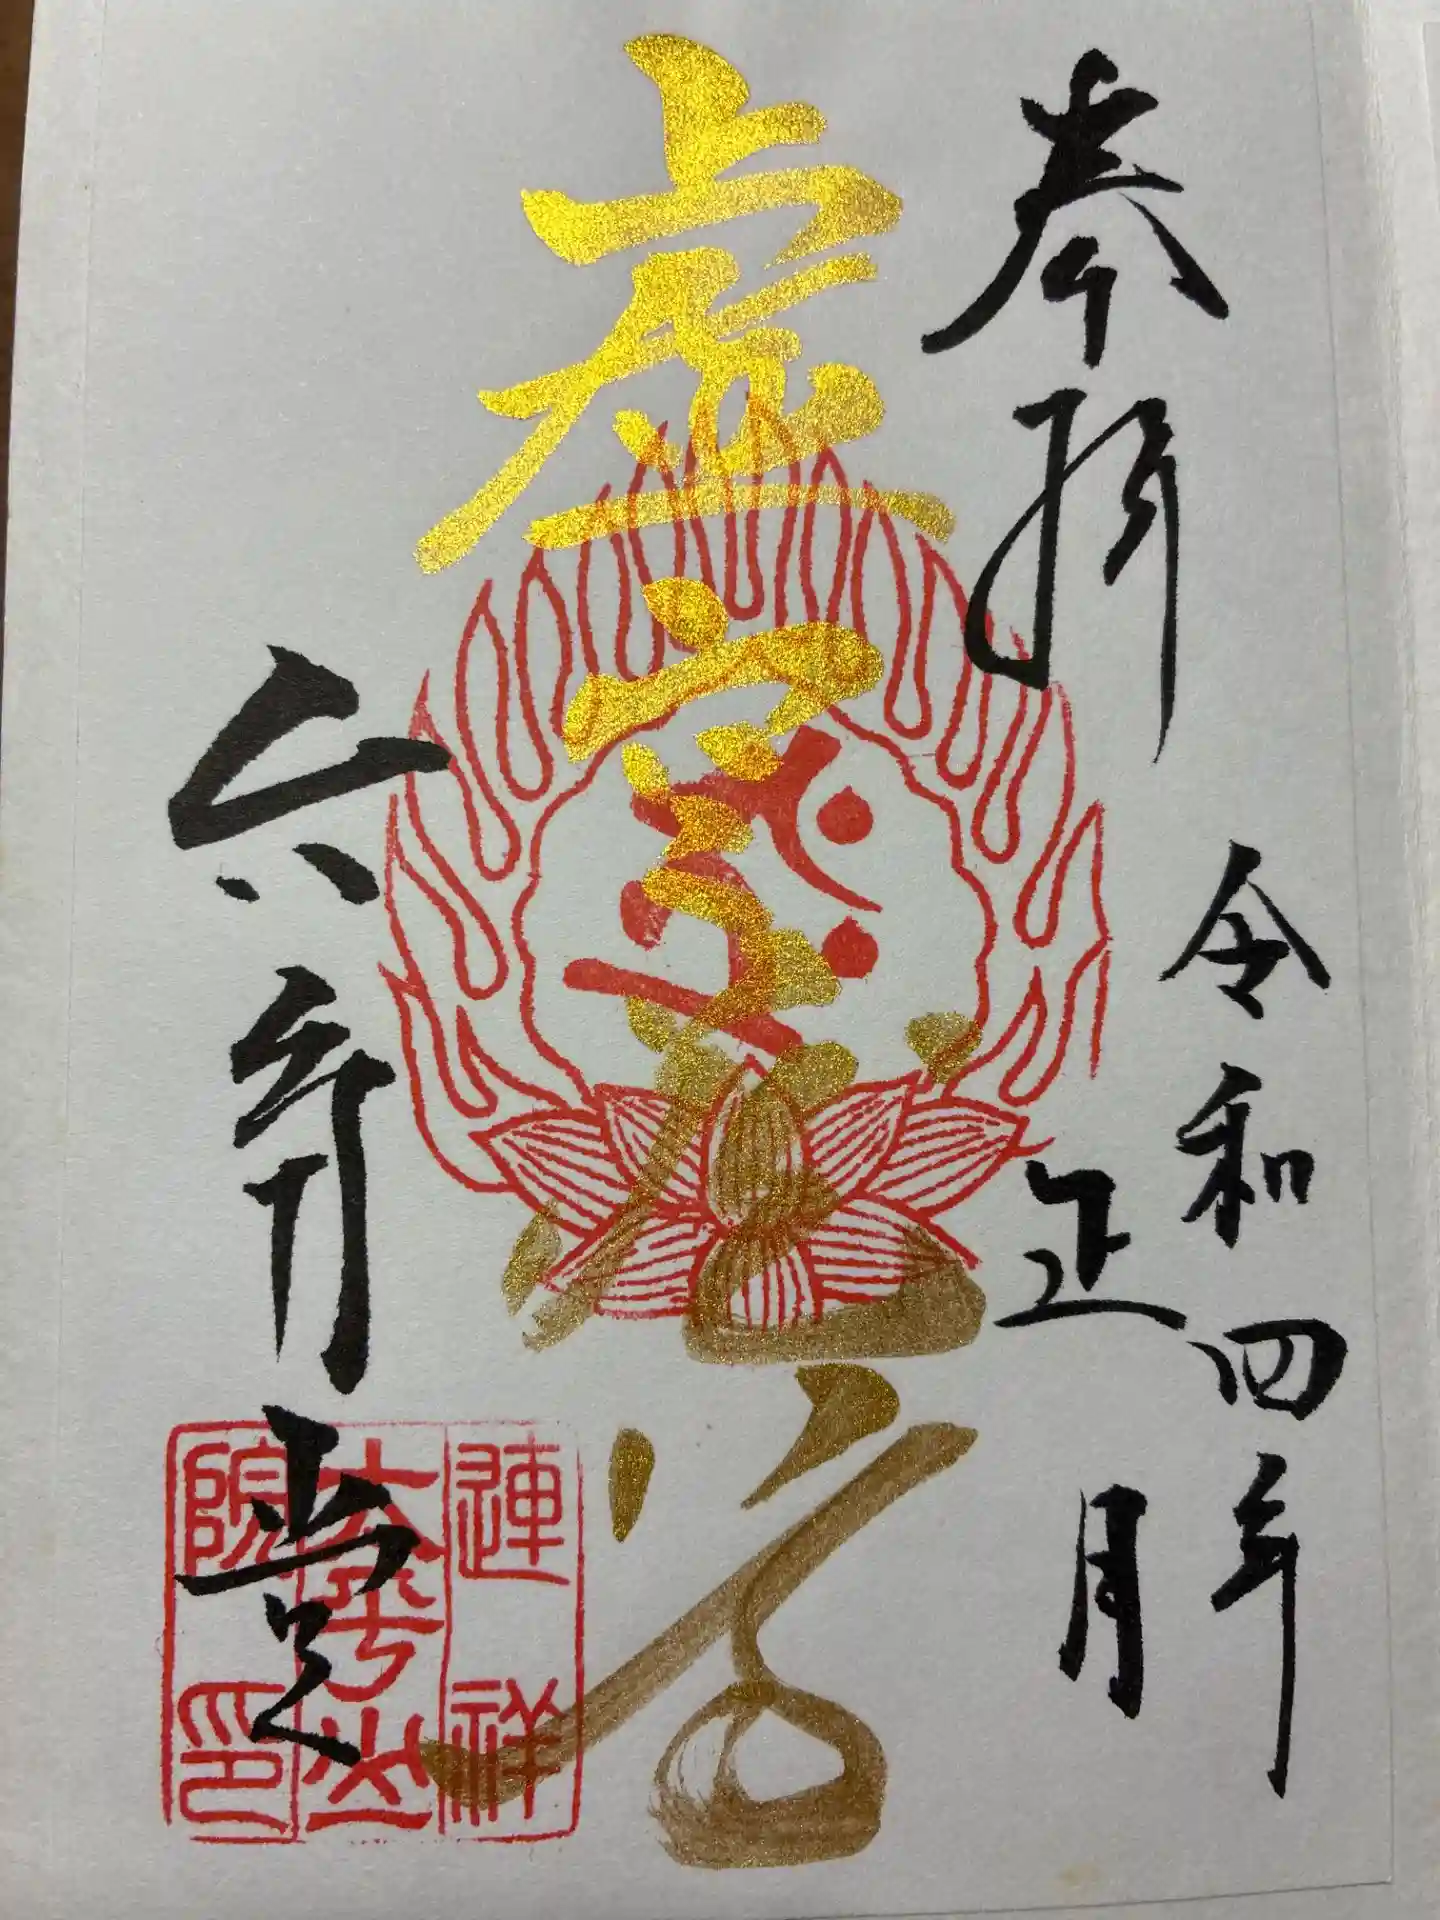 奉拝
令和四年
正月
虚空蔵
六角堂
連祥
太平山
院印